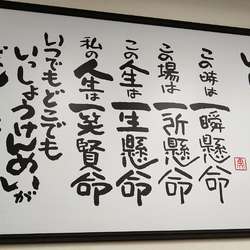 この時は一瞬懸命
この場は一所懸命
この生は一生懸命
私の人生は一笑賢命
いつでもどこでも
いっしょうけんめいが